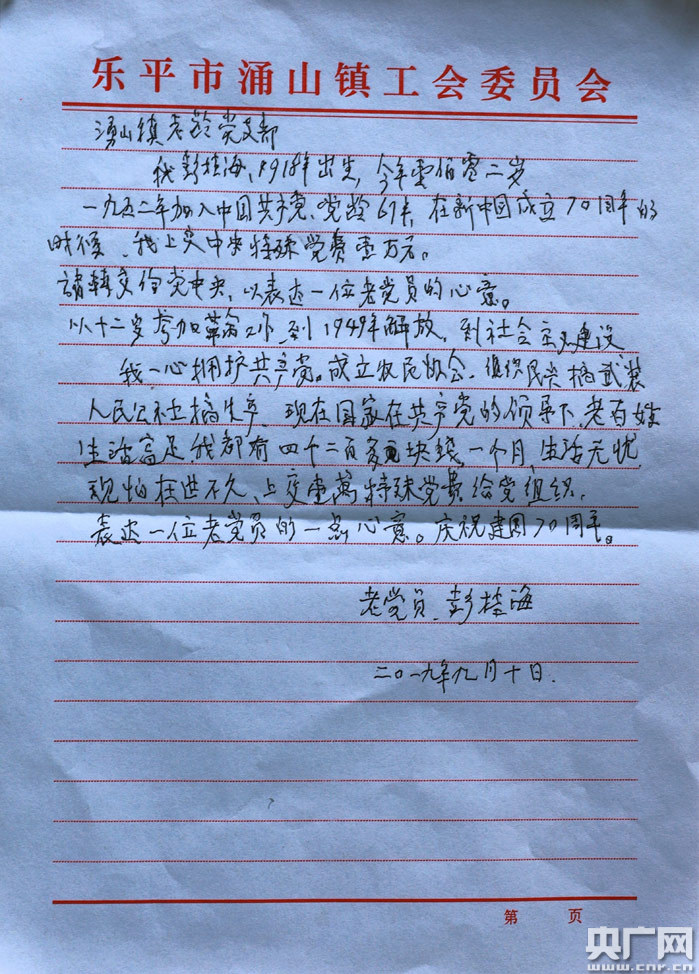 乐平市涌山镇工会委员会
涌山镇老龄党支部
我彭桂海、1918年出生，今年壹佰零二岁
一九五二年加入中国共产党、党龄67年，在新中国成立70周年的
时候、我上交中央特殊党费壹万元。
請转交给党中央，以表达一位老党员的心意。
从十二岁参加革命工作，到1949年解放，到社会主义建设
我一心拥护共产党。成立农民协会、组织民兵搞武装
人民公社搞生产、现在国家在共产党的领导下、老百姓
生活富足，我都有四十二百多块钱一个月，生活无忧，
现怕在世不久、上交壹萬特殊党费给党组织，
表达一位老党员的一点心意。庆祝建国70周年。
老党员、彭桂海
二〇一九年九月十日.
第 页
央广网
www.cnr.cn